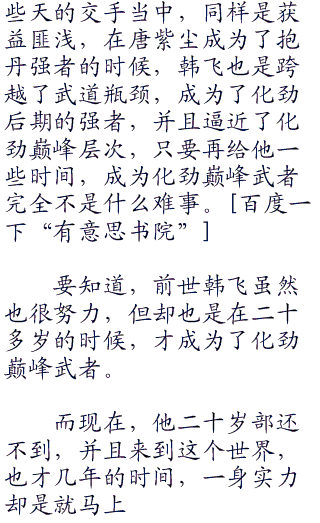 些天的交手当中，同样是获
益匪浅，在唐紫尘成为了抱
丹强者的时候，韩飞也是跨
越了武道瓶颈，成为了化劲
后期的强者，并且逼近了化
劲巅峰层次，只要再给他一
些时间，成为化劲巅峰武者
完全不是什么难事。[百度一
下“有意思书院”]
要知道，前世韩飞虽然
也很努力，但却也是在二十
多岁的时候，才成为了化劲
巅峰武者。
而现在，他二十岁部还
不到，并且来到这个世界，
也才几年的时间，一身实力
却是就马上